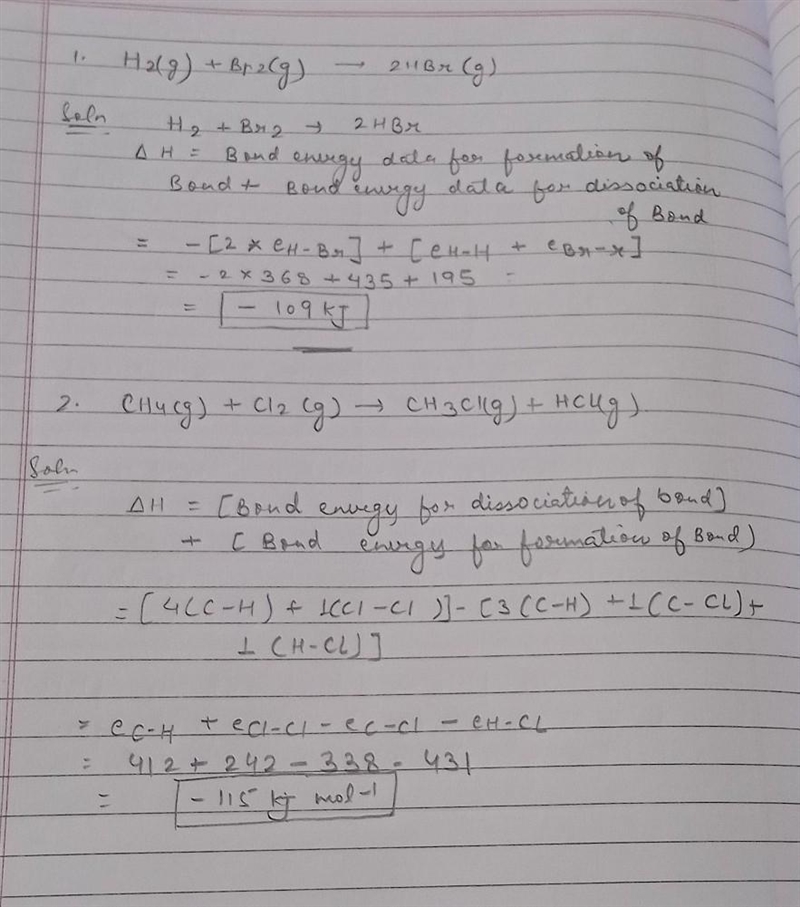 1. H2(g) + Br2(g) → 2HBr(g)
Soln H2 + Br2 → 2HBr
Δ H = Bond energy data for formation of
Bond + Bond energy data for dissociation
of Bond
= -[2 × eH-Br] + [eH-H + eBr-x]
= -2 × 368 + 435 + 195 =
= - 109 KJ
2. CH4(g) + Cl2(g) → CH3Cl(g) + HCl(g)
Soln
ΔH = [Bond energy for dissociation of bond]
+ [Bond energy for formation of Bond)
= [4(C-H) + 1(Cl-Cl)] - [3(C-H) + 1(C-CL) +
1(H-CL)]
= eC-H + eCl-Cl - eC-Cl - eH-CL
= 412 + 242 - 338 - 431
= - 115 kj mol-1